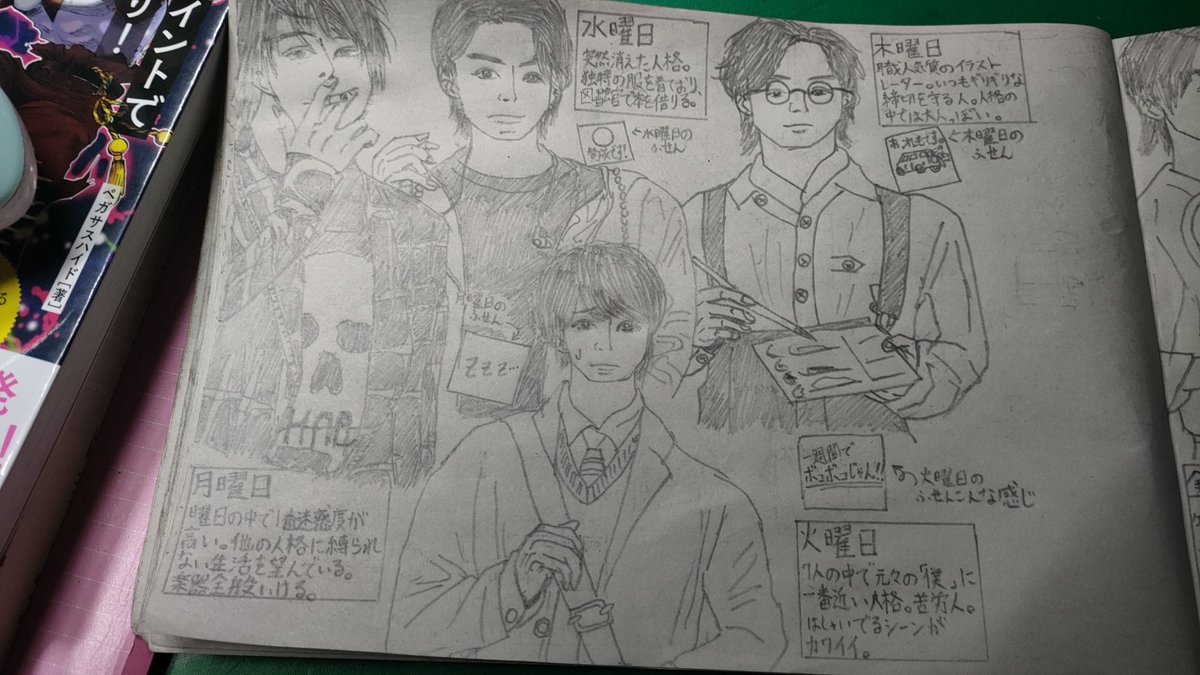 イントで
り!
ペガサスハイド[著]
水曜日
突然消えた人格。
独特の服を着ており、
図書館で本を借りる。
←水曜日の
ふせん
木曜日
職人気質のイラスト
レーター。いつもギリギリな
締切を守る人。人格の
中では大人っぽい。
おれもです。
←木曜日の
ふせん
月曜日の
ふせん
ZZZ…
一週間で
ボコボコじゃん!!
火曜日の
ふせんこんな感じ
月曜日
曜日の中で1番迷惑度が
高い。他の人格に縛られ
ない生活を望んでいる。
楽器全般いける。
火曜日
7人の中で元々の「僕」に
一番近い人格。苦労人。
はしゃいでるシーンが
カワイイ。